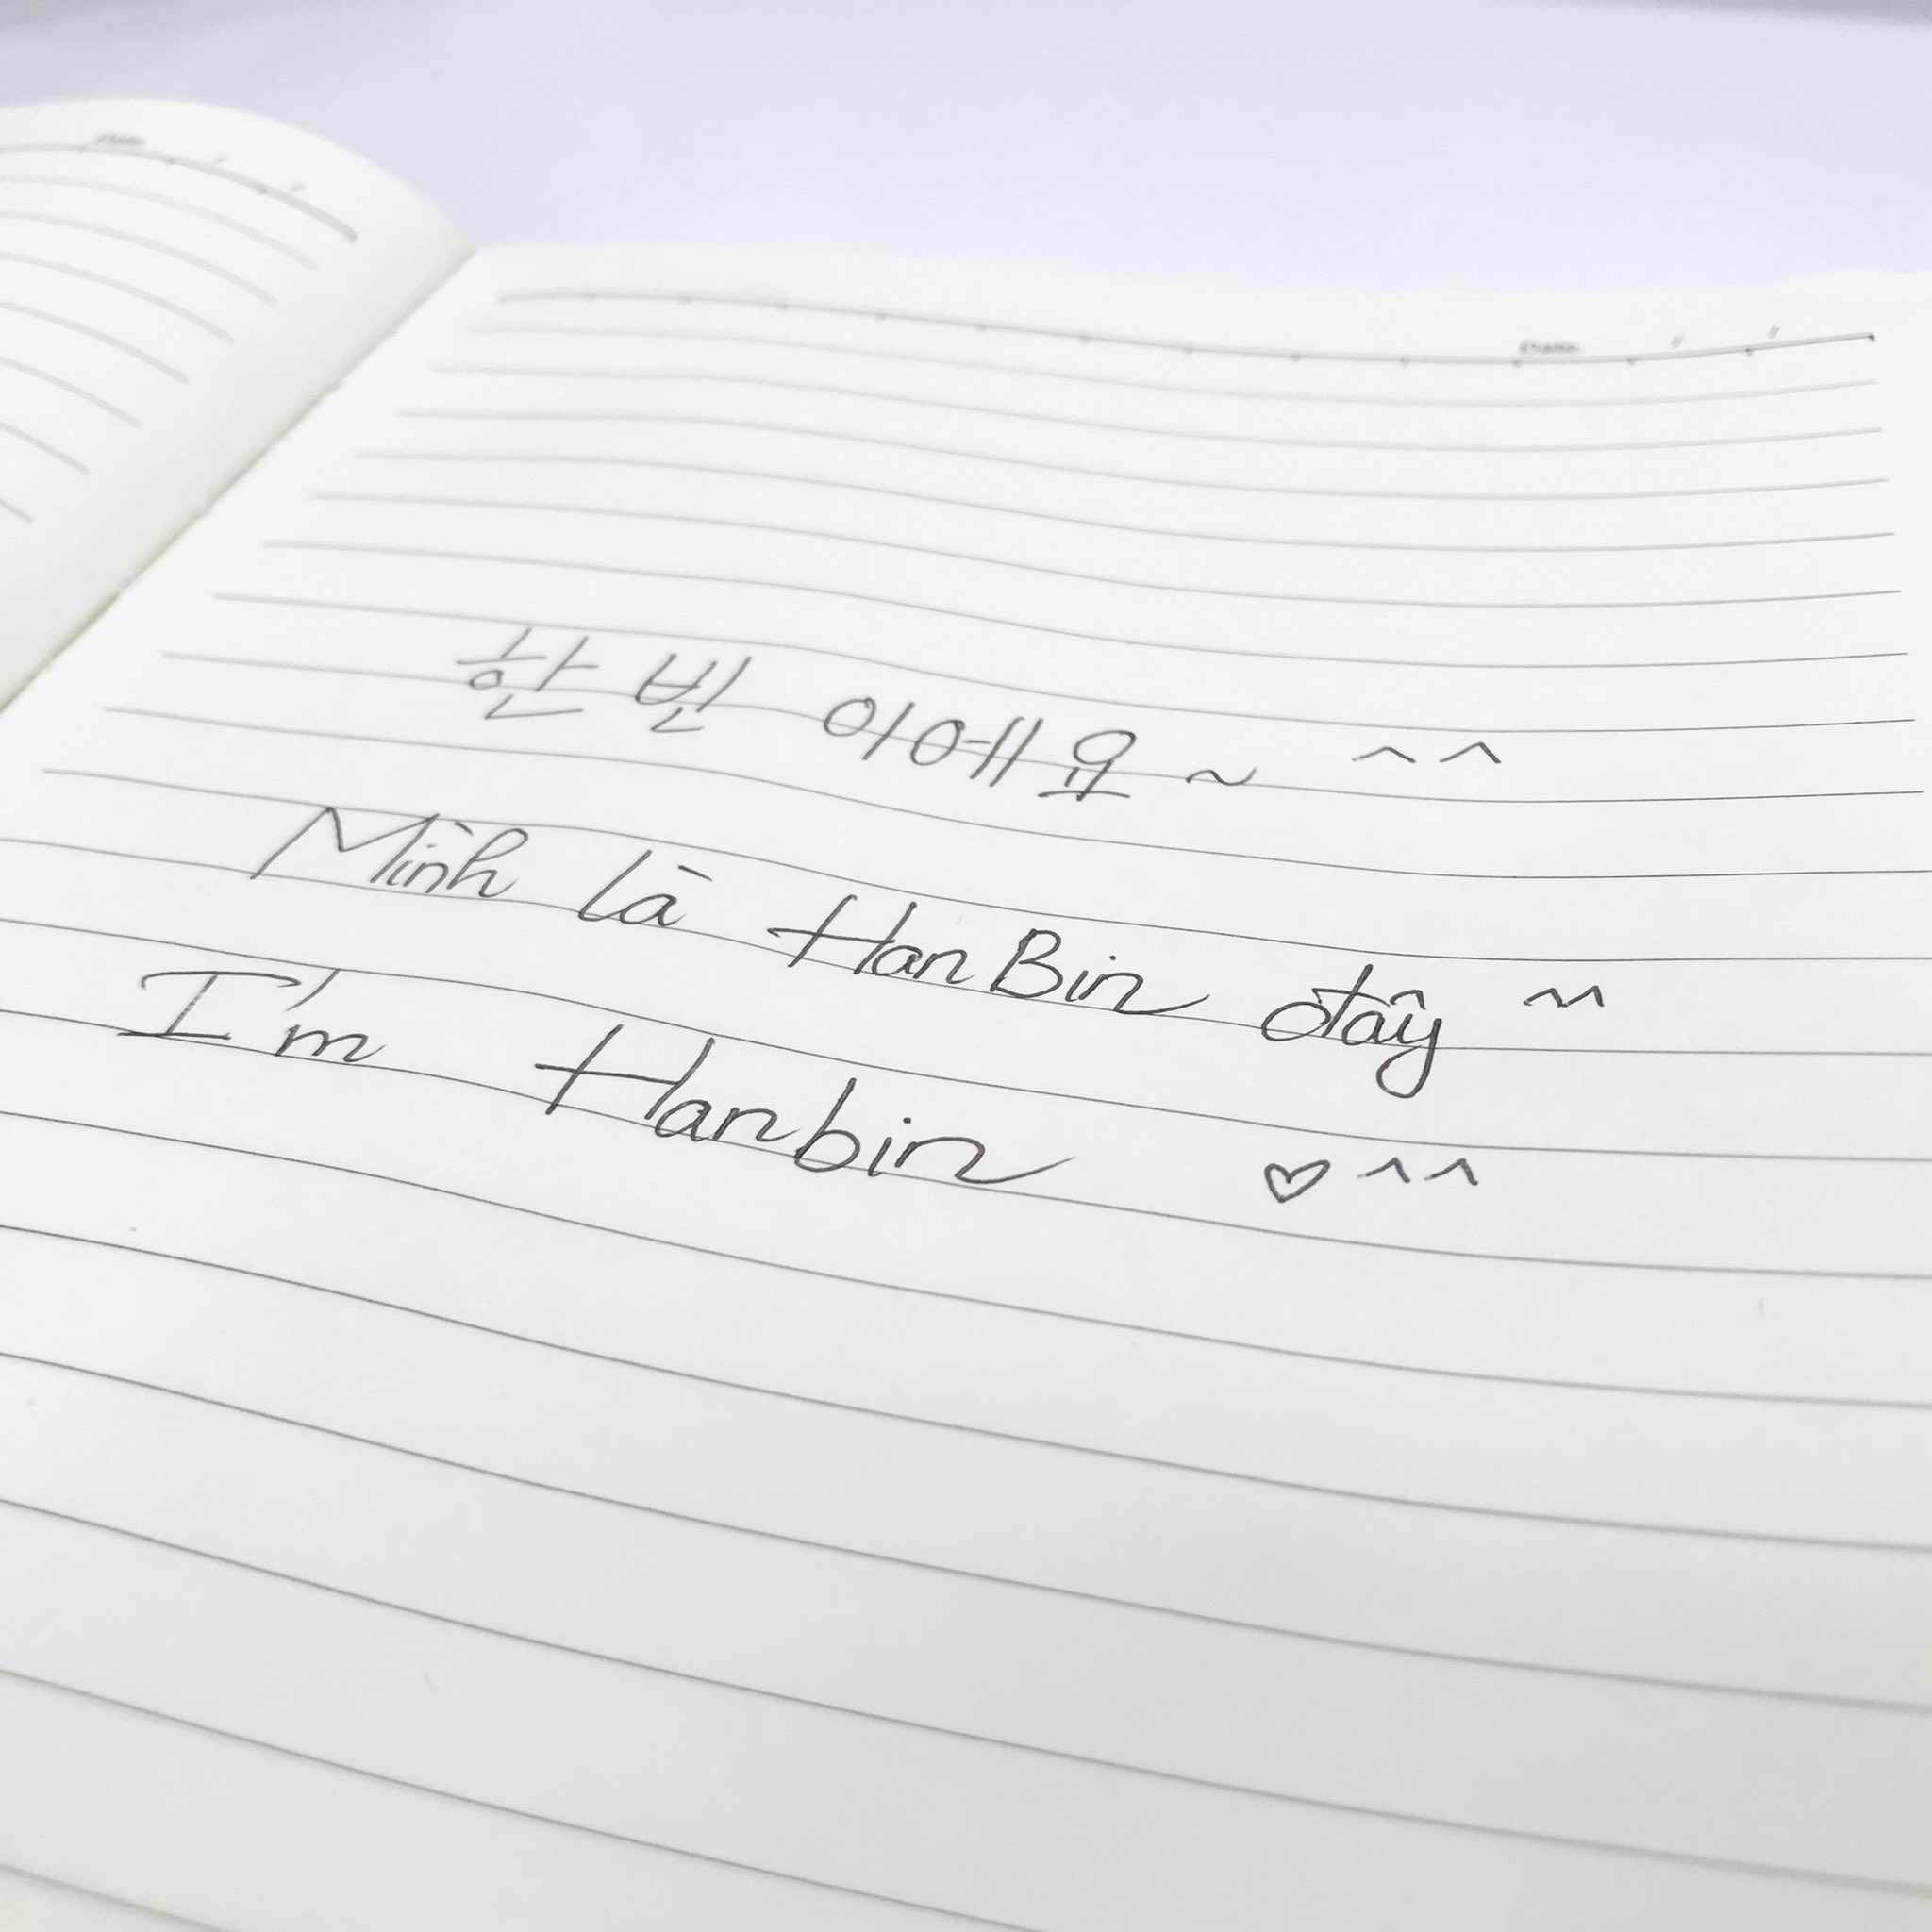 한빈 이에요~ ^^
Mình là HanBin đây ^^
I'm Hanbin ♡^^